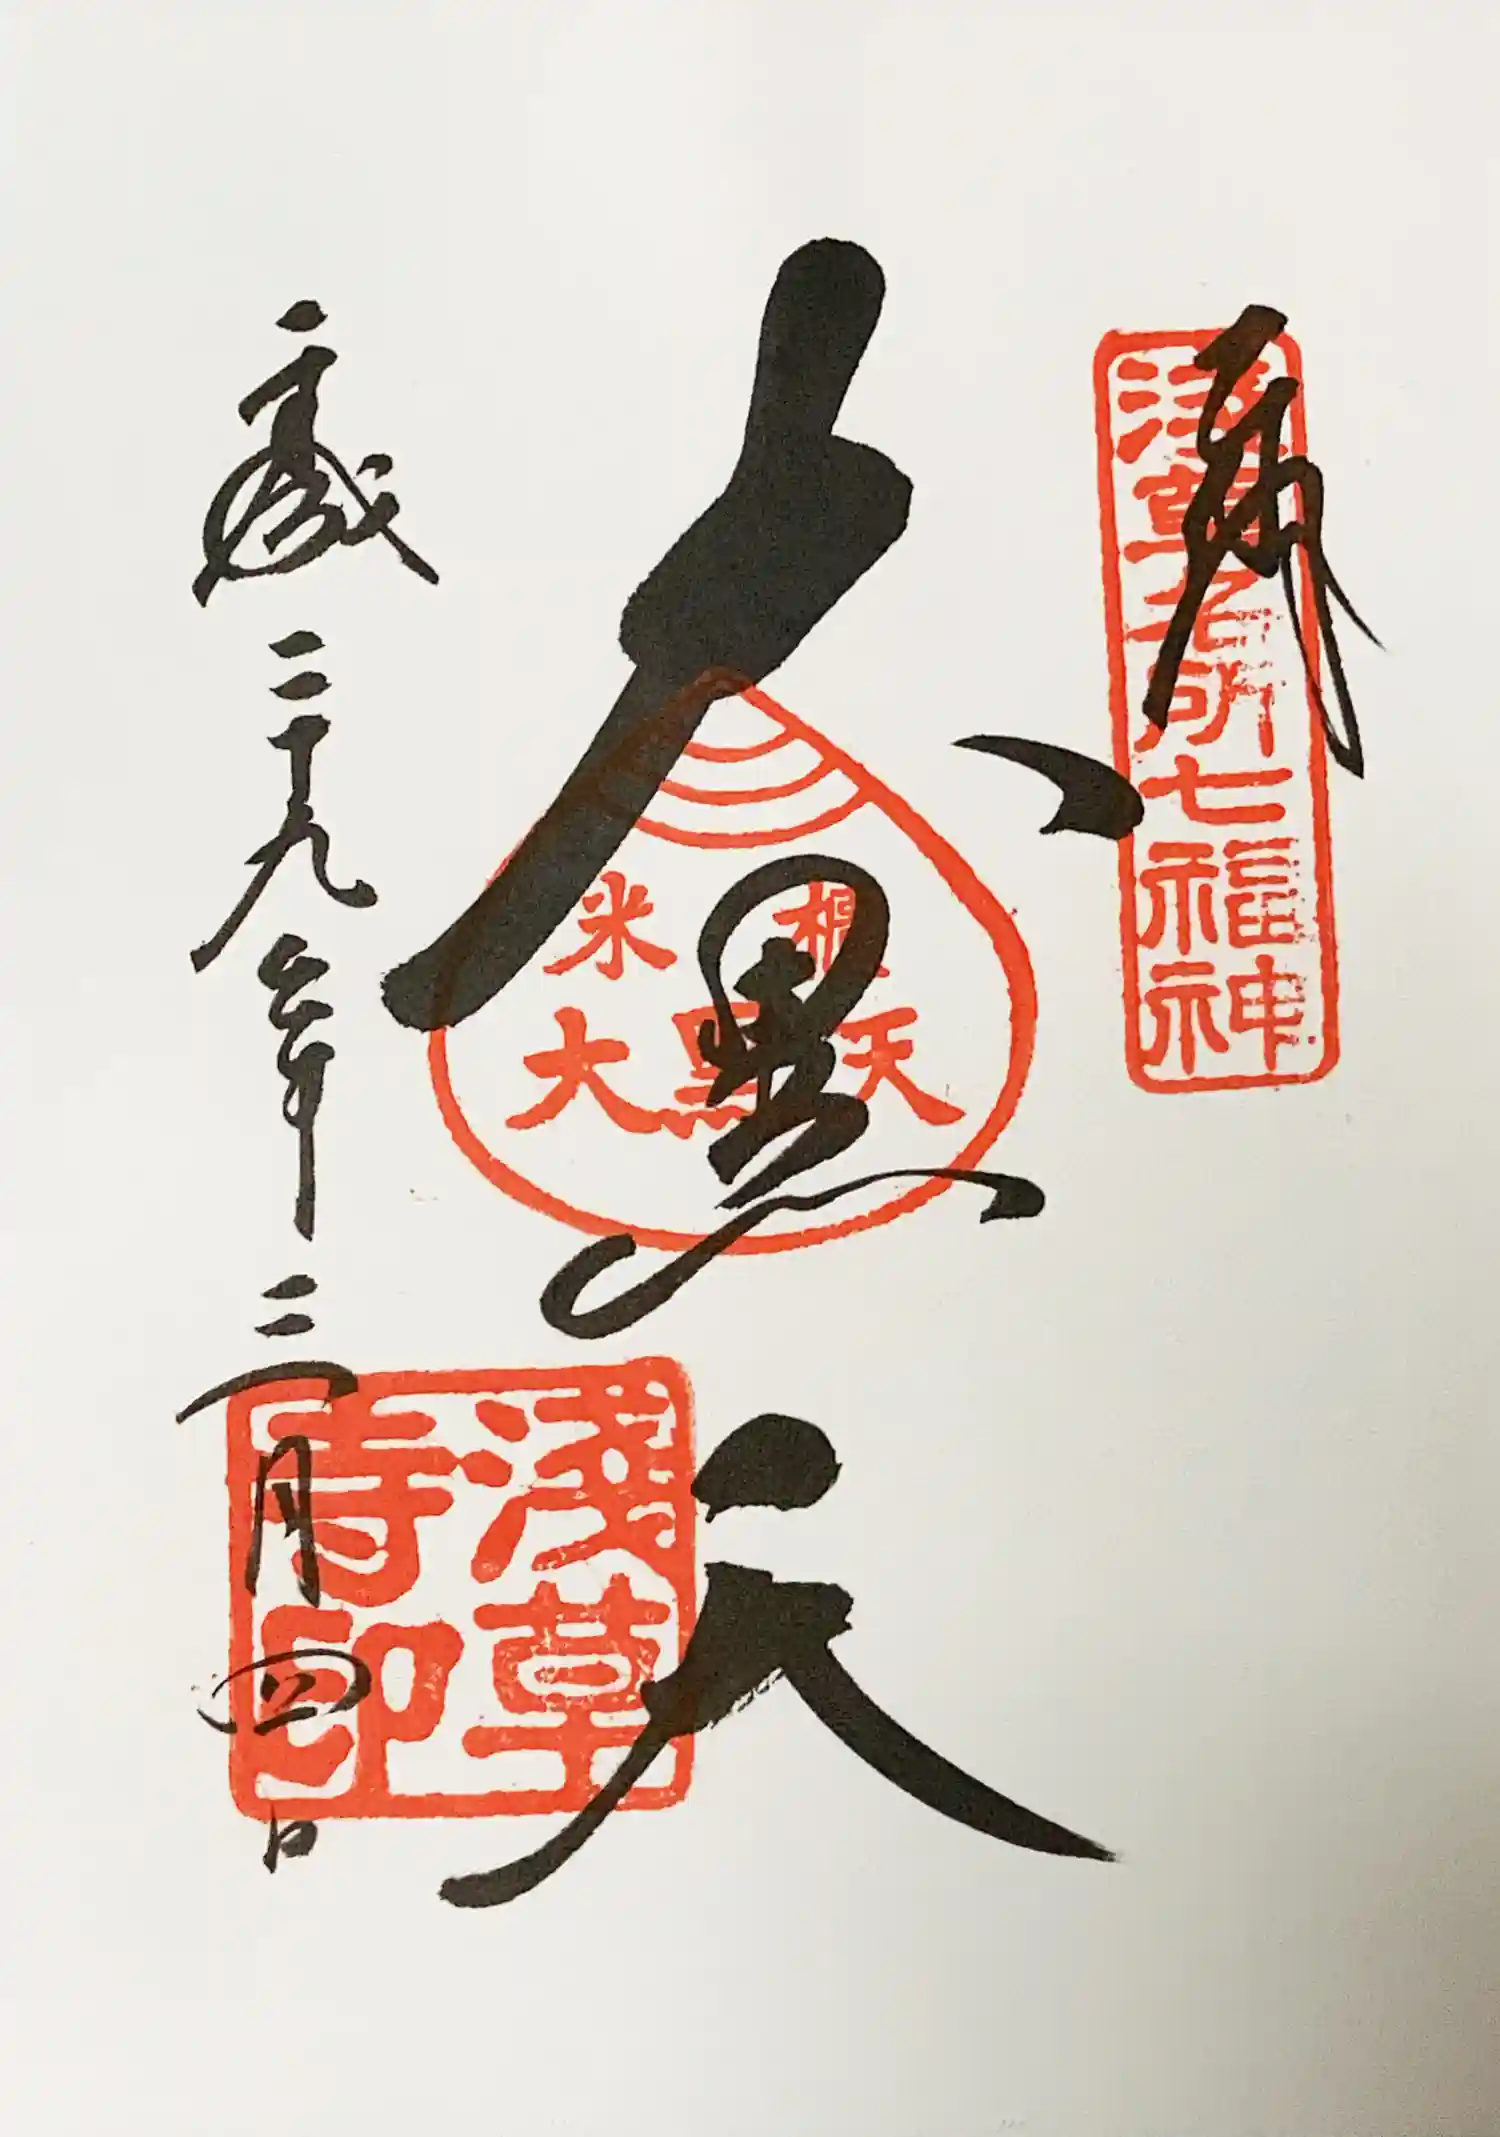 奉拝
浅草名所七福神
大黒天
米櫃
大黒天
平成二十九年三月四日
淺草
寺印